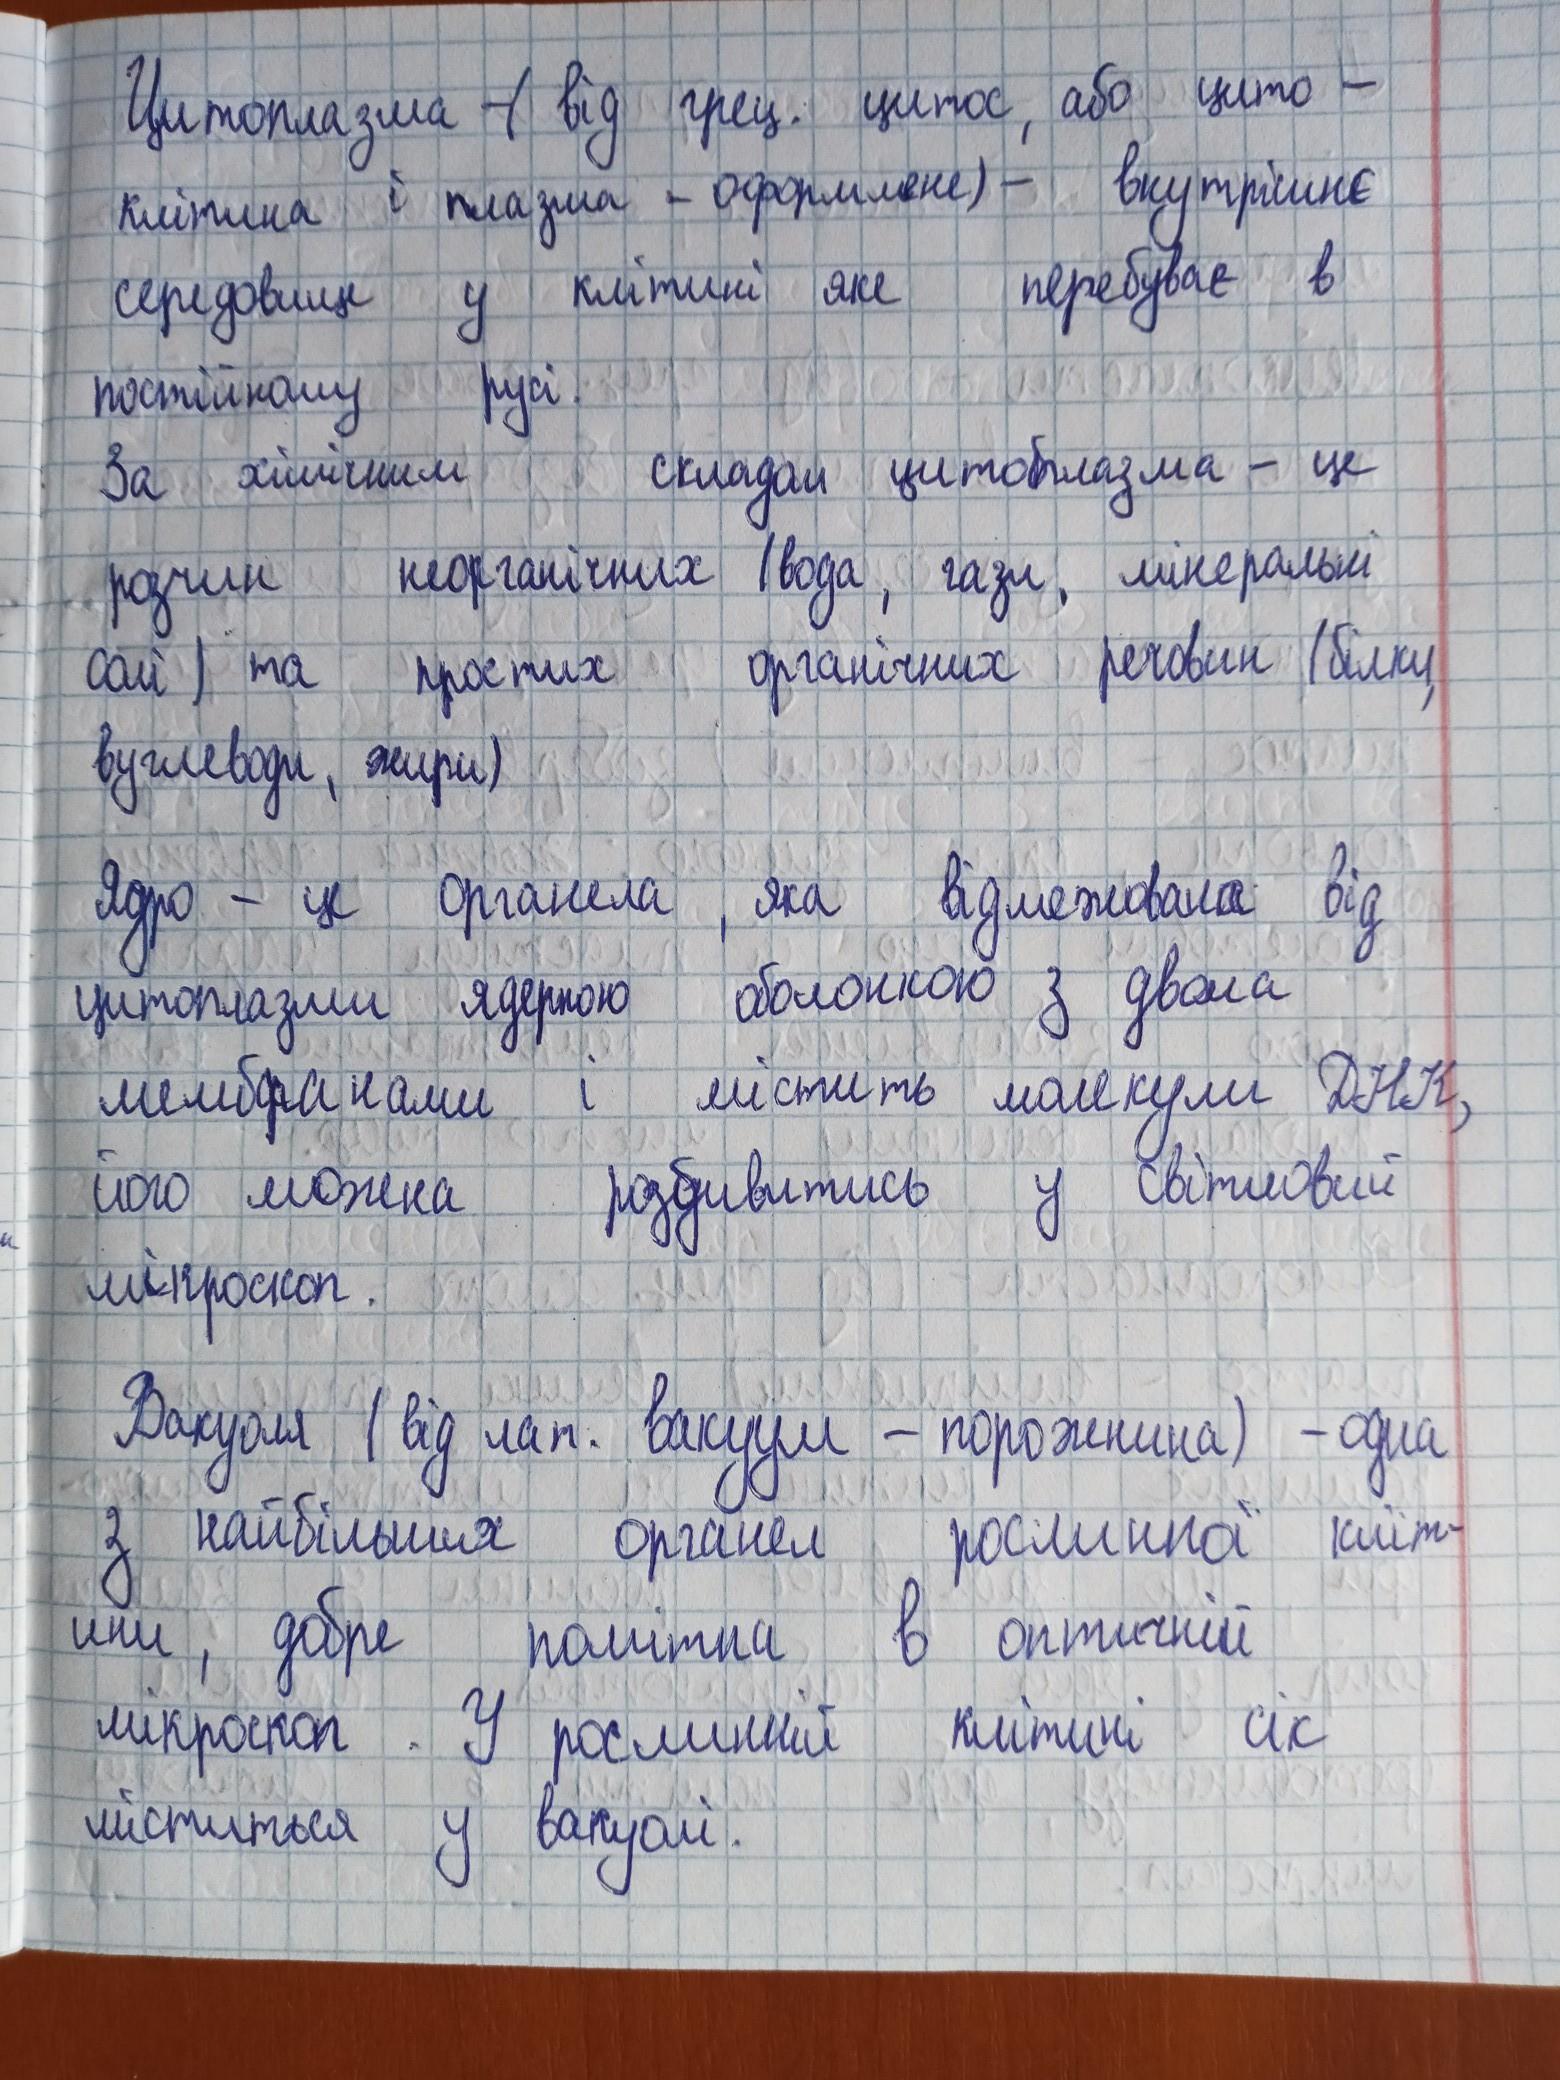 Цитоплазма - ( від грец. цитос, або цито -
клітина і плазма - оформлене) - внутрішнє
середовище у клітині яке перебуває в
постійному русі.
За хімічним складом цитоплазма - це
розчин неорганічних (вода, гази, мінеральні
солі) та простих органічних речовин (білки,
вуглеводи, жири)
Ядро - це органела, яка відмежована від
цитоплазми ядерною оболонкою з двома
мембранами і містить молекули ДНК,
його можна роздивитись у світловий
мікроскоп.
Вакуоля (від лат. вакуум - порожнина) - одна
з найбільших органел рослинної кліт-
ини, добре помітна в оптичній
мікроскоп. У рослинній клітині сік
міститься у вакуолі.